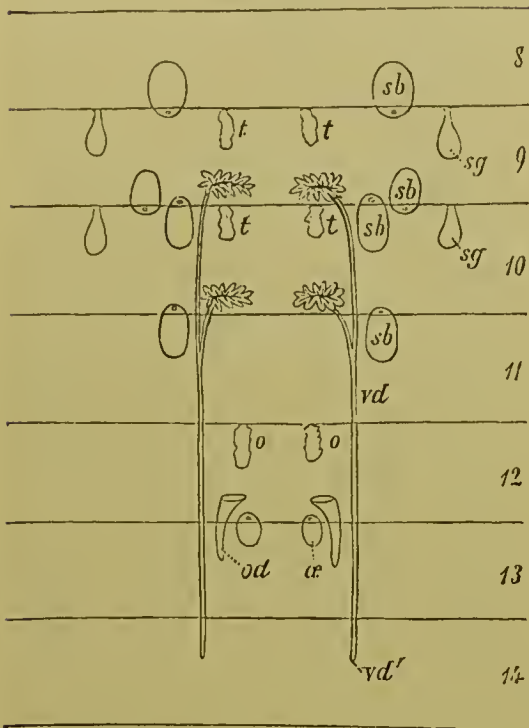 8
sb
t t
sg
9
sb
t t
sb
sg
10
sb
11
vd
o o
12
od œ
13
vd'
14